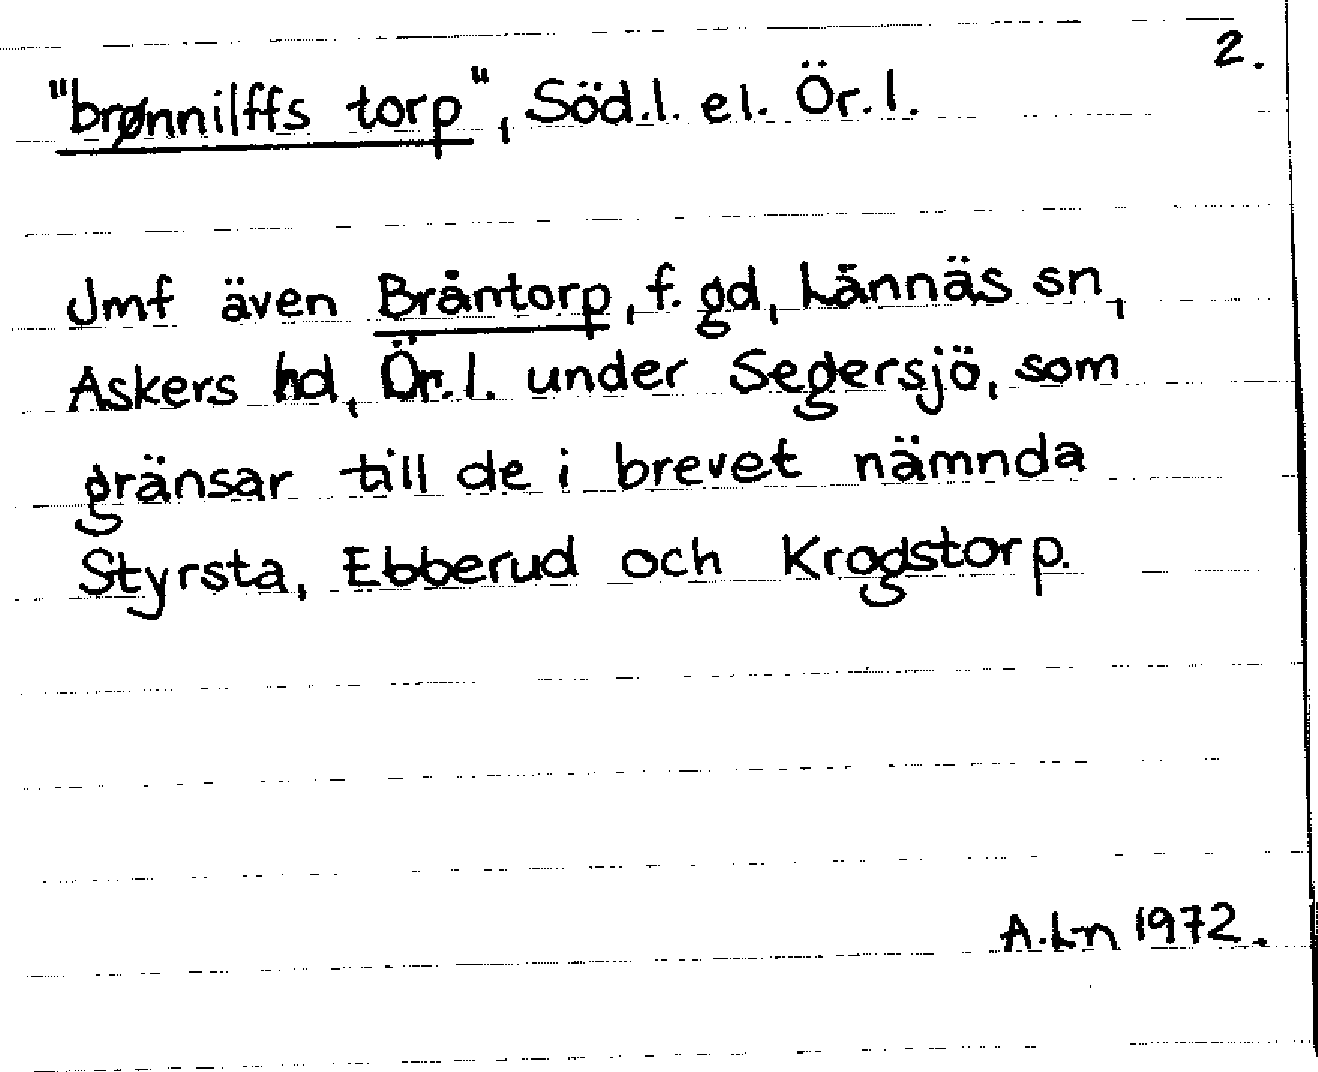 2.
"brønnilffs torp", Söd.l. el. Ör.l.
Jmf även Bråntorp, f. gd, Lännäs sn,
Askers hd, Ör.l. under Segersjö, som
gränsar till de i brevet nämnda
Styrsta, Ebberud och Krogstorp.
A.Ln 1972.